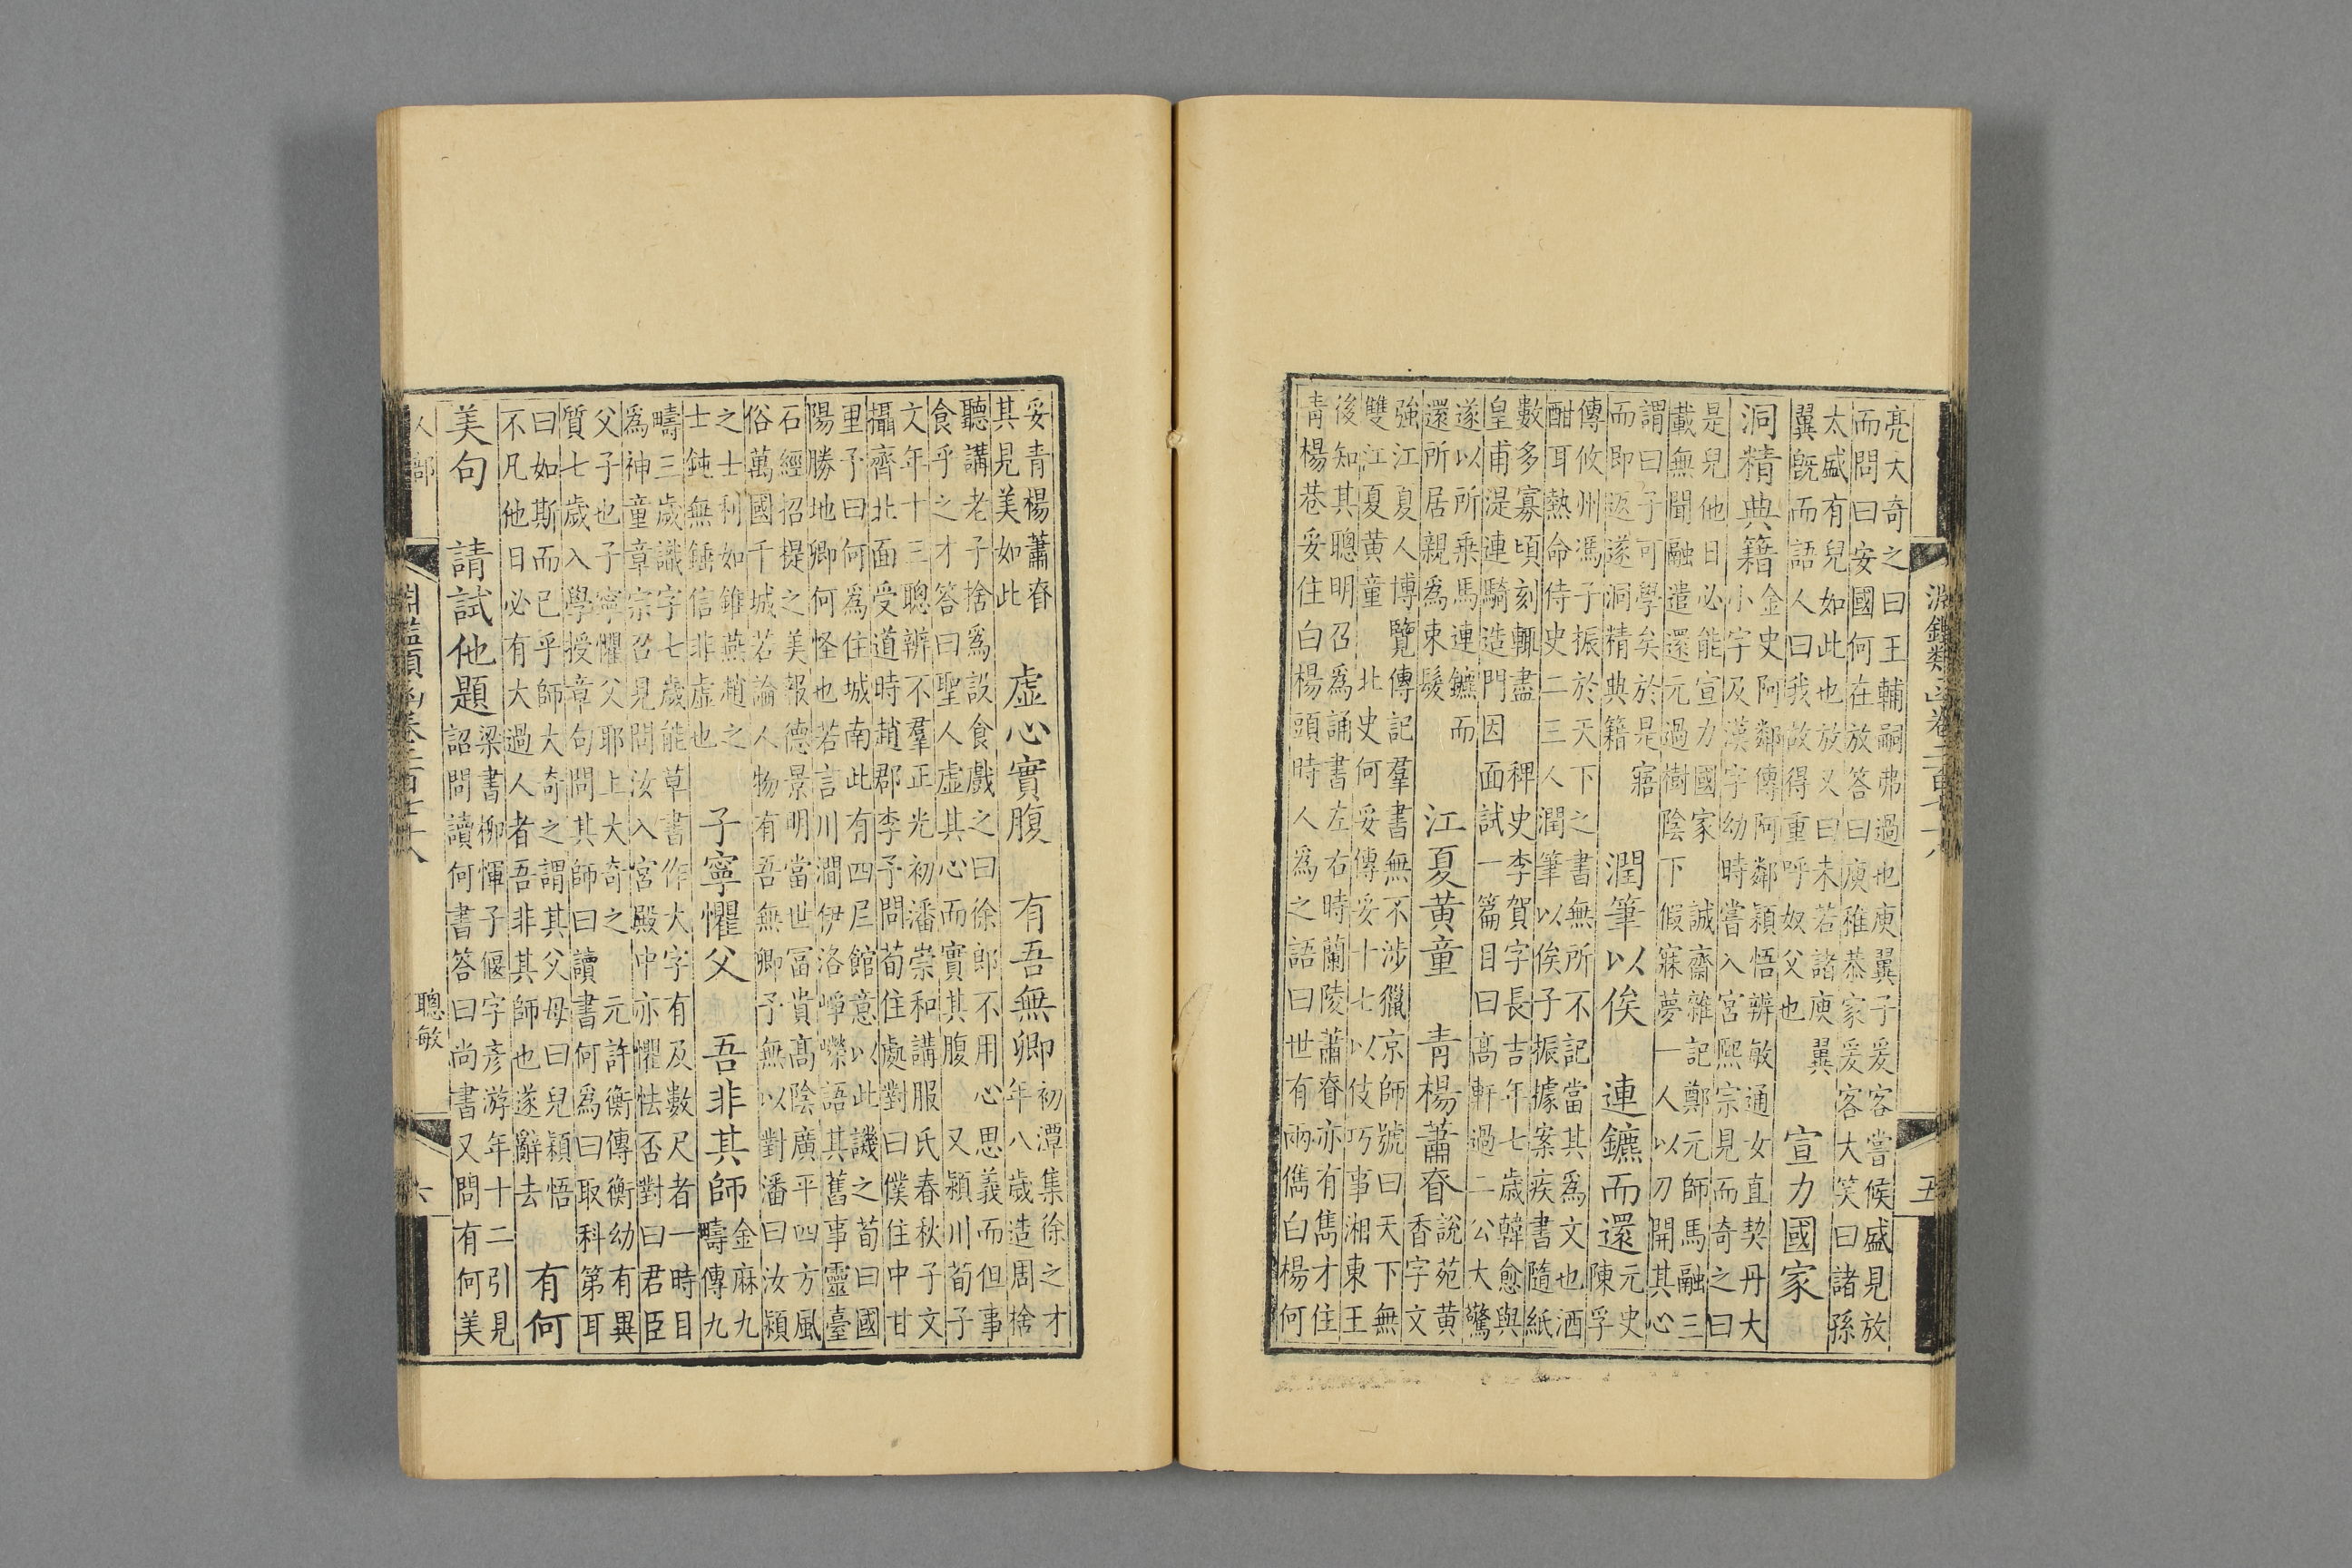 淵鑑類函卷二百七十八
五
亮大奇之曰王輔嗣弗過也庾翼子爰客嘗候盛見放
而問曰安國何在放答曰庾稚恭家爰客大笑曰諸孫
太盛有兒如此也放又曰未若諸庾翼
翼既而語人曰我故得重呼奴父也
宣力國家
洞精典籍
金史阿鄰傳阿鄰穎悟辨敏通女直契丹大
小字及漢字幼時嘗入宮熙宗見而奇之曰
是兒他日必能宣力國家 誠齋雜記鄭元師馬融三
載無聞融遣還元過樹陰下假寐夢一人以刀開其心
謂曰子可學矣於是寤
而即返遂洞精典籍
潤筆以俟 連鑣而還
元史
陳孚
傳攸州馮子振於天下之書無所不記當其爲文也酒
酣耳熱命侍史二三人潤筆以俟子振據案疾書隨紙
數多寡頃刻輒盡 稗史李賀字長吉年七歲韓愈與
皇甫湜連騎造門因面試一篇目曰高軒過二公大驚
遂以所乘馬連鑣而
還所居親爲束髮
江夏黃童 青楊蕭眘
說苑黃
香字文
強江夏人博覽傳記羣書無不涉獵京師號曰天下無
雙江夏黃童 北史何妥傳妥十七以伎巧事湘東王
後知其聰明召爲誦書左右時蘭陵蕭眘亦有雋才住
青楊巷妥住白楊頭時人爲之語曰世有兩儁白楊何
妥青楊蕭眘
其見美如此
虛心實腹 有吾無卿
初潭集徐之才
年八歲造周捨
聽講老子捨爲設食戲之曰徐郎不用心思義而但事
食乎之才答曰聖人虛其心而實其腹 又潁川荀子
文年十三聰辨不羣正光初潘崇和講服氏春秋子文
攝齊北面受道時趙郡李予問荀住處對曰僕住中甘
里予曰何爲住城南此有四尼館意以此譏之荀曰國
陽勝地卿何怪也若言川澗伊洛崢嶸語其舊事靈臺
石經招提之美報德景明當世富貴高陰廣平四方風
俗萬國千城若論人物有吾無卿予無以對潘曰汝潁
之士利如錐燕趙之
士鈍無錘信非虛也
子寧懼父 吾非其師
金麻九
疇傳九
疇三歲識字七歲能草書作大字有及數尺者一時目
爲神童章宗召見問汝入宮殿中亦懼怯否對曰君臣
父子也子寧懼父耶上大奇之 元許衡傳衡幼有異
質七歲入學授章句問其師曰讀書何爲曰取科第耳
曰如斯而已乎師大奇之謂其父母曰兒穎悟
不凡他日必有大過人者吾非其師也遂辭去
有何
美句 請試他題
梁書柳惲子偃字彥游年十二引見
詔問讀何書答曰尚書又問有何美
人部
淵鑑類函卷二百七十八
聰敏
六